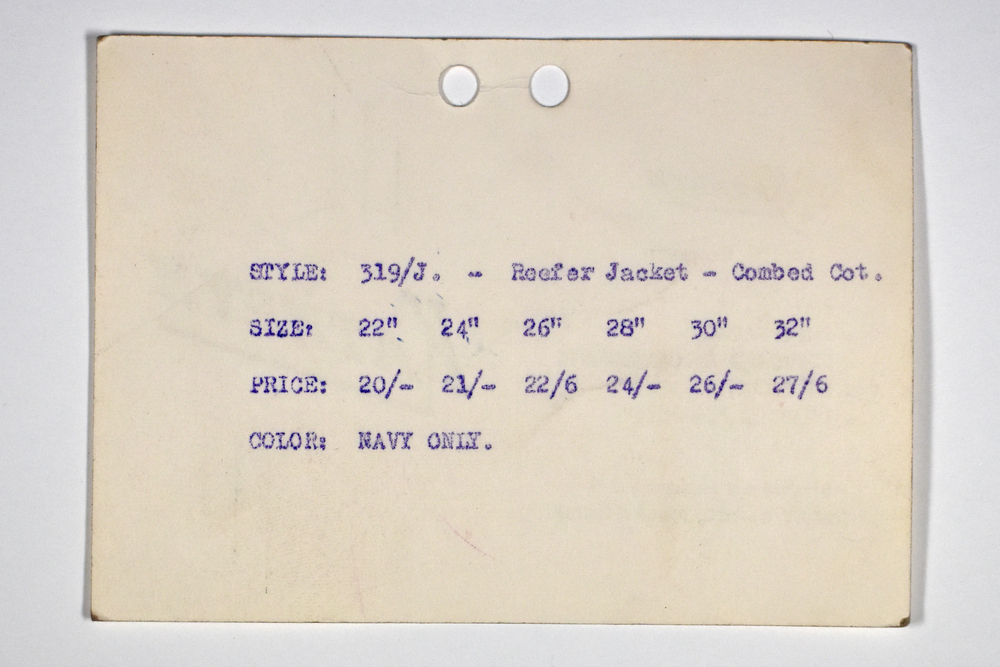 STYLE: 319/J. - Reefer Jacket - Combed Cot.
SIZE: 22" 24" 26" 28" 30" 32"
PRICE: 20/- 21/- 22/6 24/- 26/- 27/6
COLOR: NAVY ONLY.